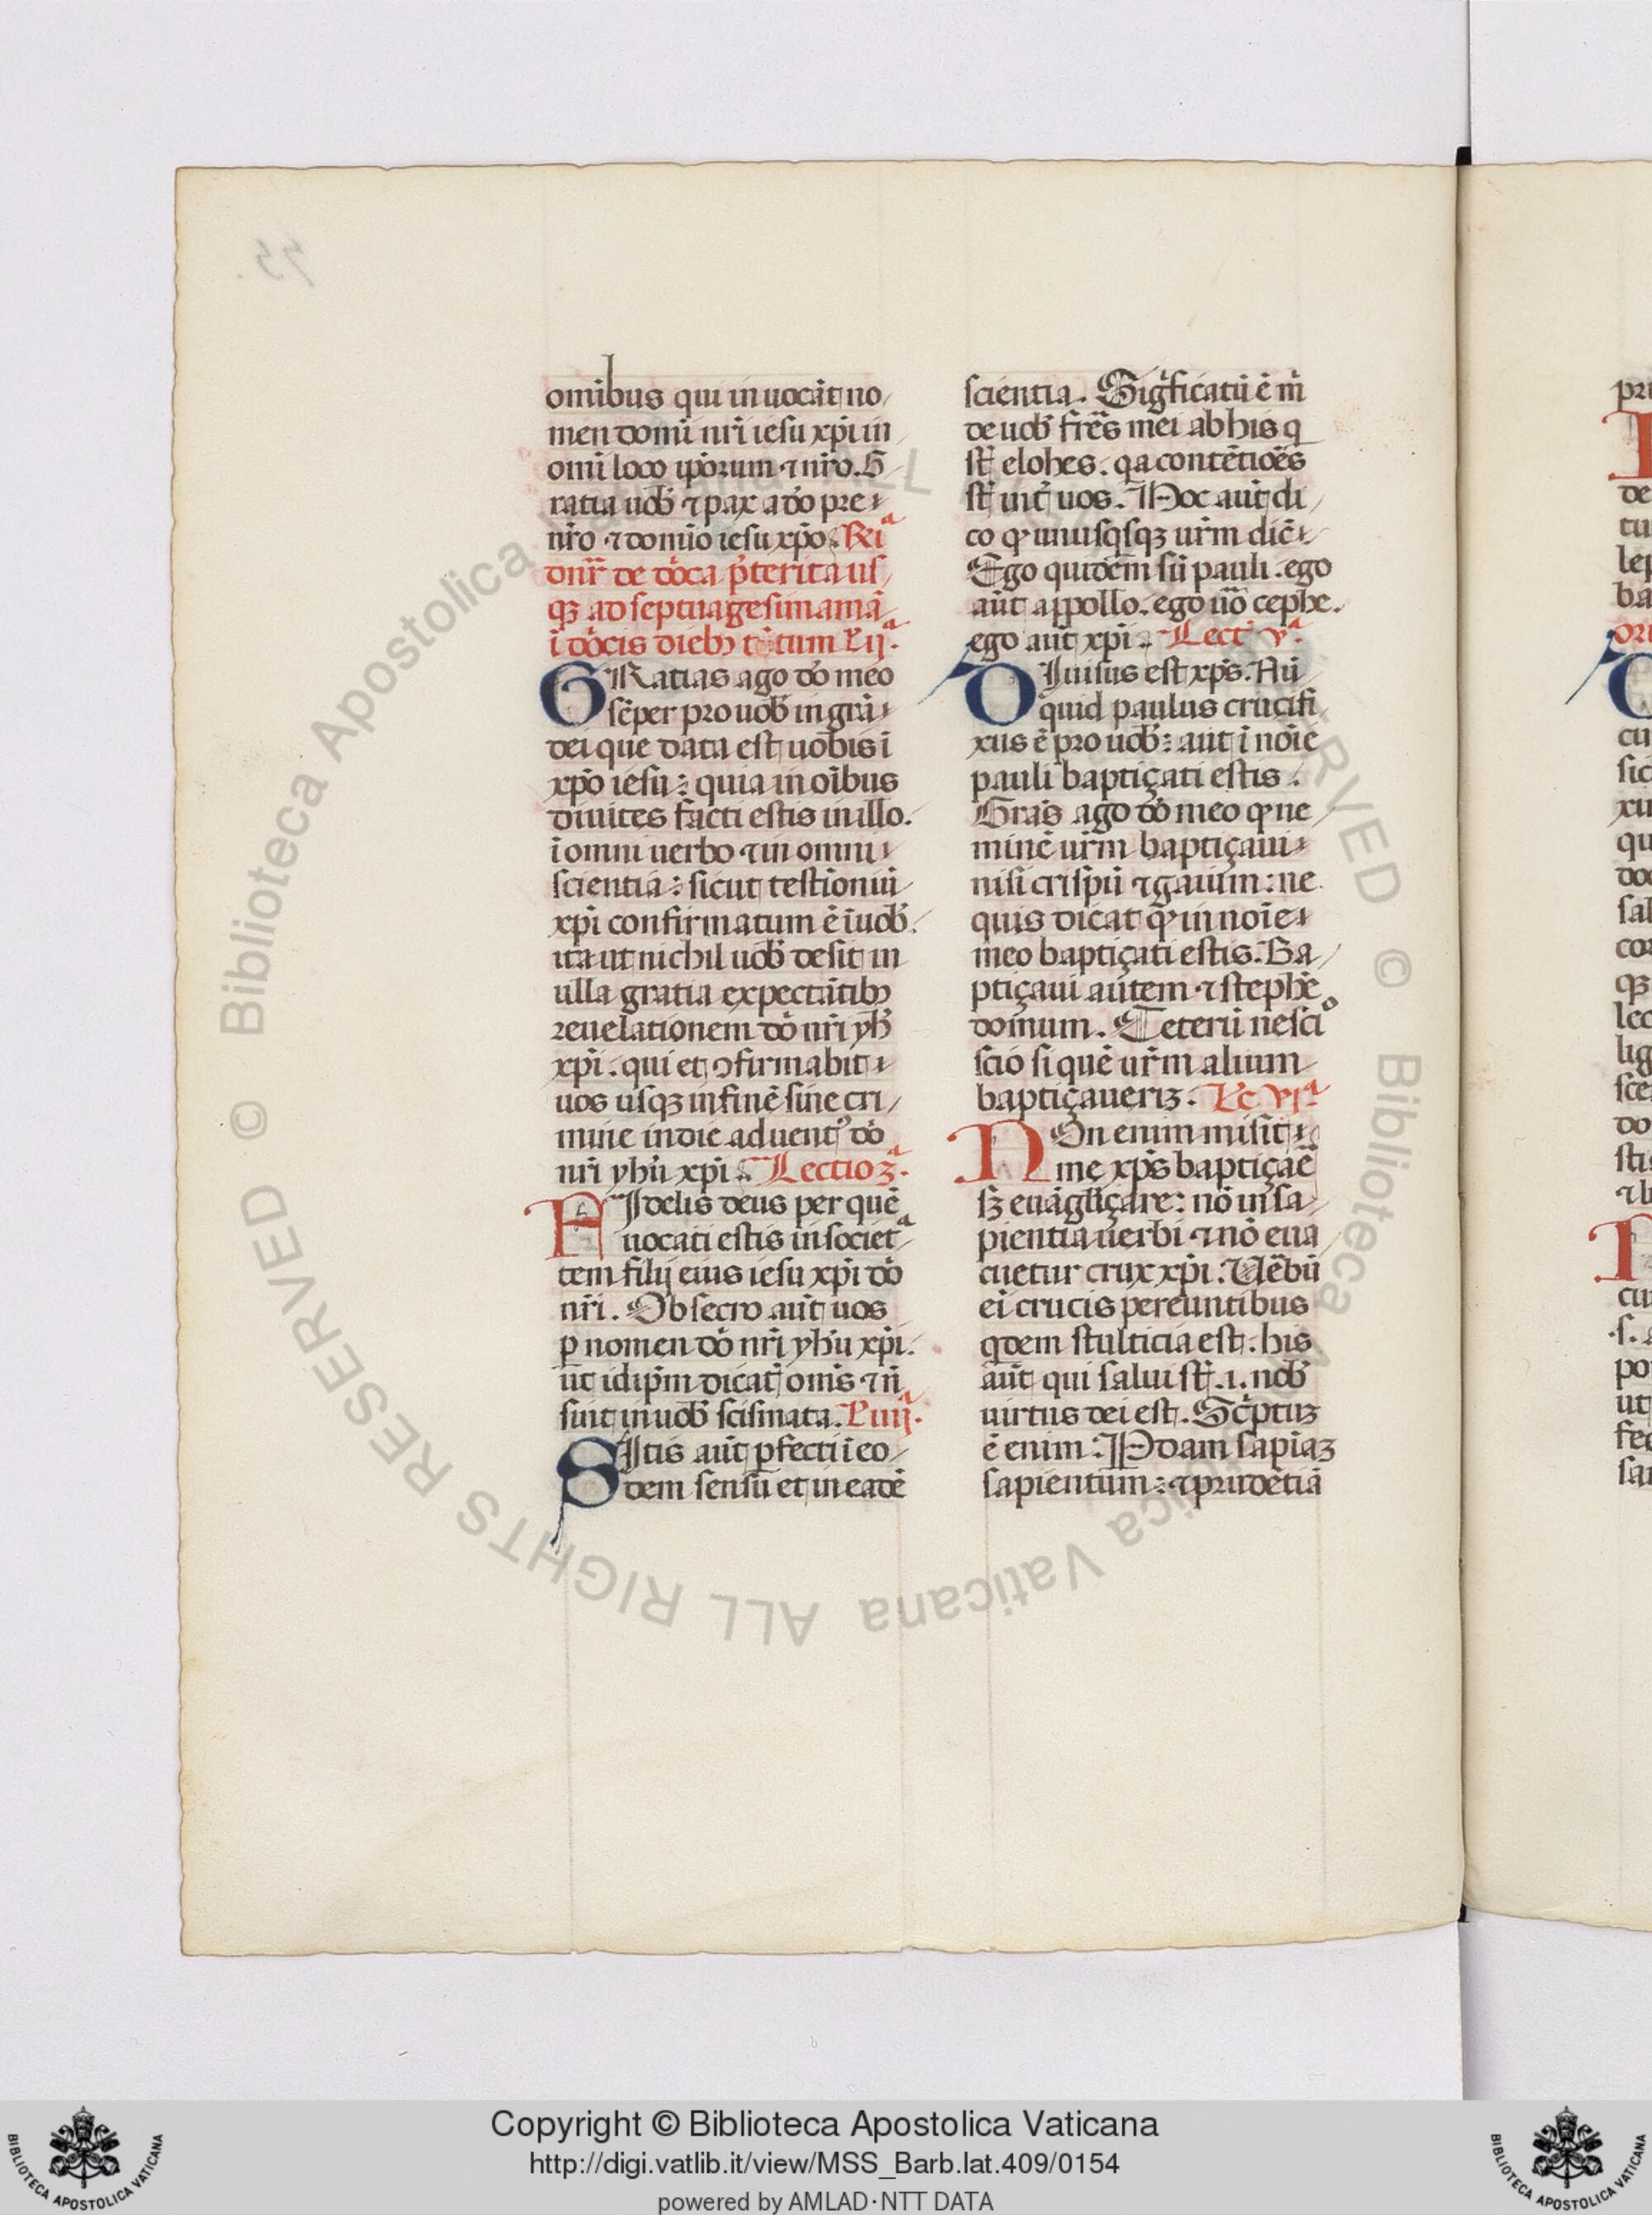 omībus qui inuocāt no
men domī nr̄i iesu xp̄i in
omī loco ip̄orum ⁊ nr̄o. G
ratia uob̄ ⁊ pax a dō pre
nr̄o ⁊ domīo iesu xp̄o. Rn̄
dn̄r de dōca p̄terita us
qꝫ ad septuagesimamᵃ
ī dōcis diebꝫ tātum L ijᵃ.
GRatias ago dō meo
sēper pro uob̄ in grā
dei que data est uobis ī
xp̄o iesu: quia in oībus
diuites facti estis in illo.
ī omni uerbo ⁊ in omni
scientia: sicut testīoniū
xp̄i confirmatum ē ī uob̄.
ita ut nichil uob̄ desit in
ulla gratia expectātibꝫ
reuelationem dō nr̄i yh̄
xp̄i. qui et ꝯfirmabit
uos usqꝫ in finē sine cri
mine in die aduentꝰ dō
nr̄i yh̄u xp̄i. Lectio 3ᵃ.
FIdelis deus per quē
uocati estis in societᵃ
tem filij eius iesu xp̄i dō
nr̄i. Obsecro aūt uos
ꝑ nomen dō nr̄i yh̄u xp̄i.
ut idip̄m dicat̄ om̄s ⁊ n̄
sint in uob̄ scismata. L iiijᵃ.
SItis aūt ꝑfecti ī eo
dem sensu et in eadē
scientia. Sigᵃficatū ē m̄
de uob̄ fr̄es mei ab his q
st̄ elohes. qa contētiōes
st̄ int̄ uos. Hoc aūt di
co ꝙ unusqsqꝫ ur̄m dic̄
Ego quidem sū pauli. ego
aūt appollo. ego uō cephe.
ego aūt xp̄i. Lect̄ vᵃ.
DIuisus est xp̄s. Nū
quid paulus crucifi
xus ē pro uob̄: aut ī noīe
pauli baptiçati estis.
Grās ago dō meo ꝙ ne
minē ur̄m baptiçaui
nisi crispū ⁊ gaium: ne
quis dicat ꝙ in noīe
meo baptiçati estis. Ba
ptiçaui autem ⁊ stephē
domum. Ceterū nesciᵒ
scio si quē ur̄m alium
baptiçauerīꝫ. Lc̄ vjᵃ.
NOn enim misit
me xp̄s baptiçar̄e
sꝫ euāgliçare: nō in sa
pientia uerbi ⁊ nō eua
cuetur crux xp̄i. Uerbū
eī crucis pereuntibus
qdem stulticia est. his
aūt qui salui st̄ .i. nob̄
uirtus dei est. Sc̄ptuꝫ
ē enim. Pdam sapīaꝫ
sapientum: ⁊ prudētiā
Copyright © Biblioteca Apostolica Vaticana
http://digi.vatlib.it/view/MSS_Barb.lat.409/0154
powered by AMLAD·NTT DATA